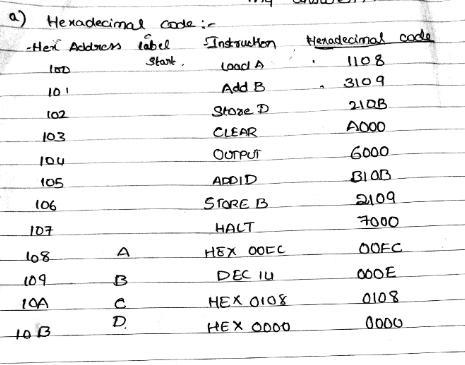 a) Hexadecimal code :-
-Hex Address label Instruction Hexadecimal code
100 Start. Load A 1108
101 Add B 3109
102 Store D 210B
103 CLEAR A000
104 OUTPUT 6000
105 ADDID B10B
106 STORE B 2109
107 HALT 7000
108 A HEX 00FC 00FC
109 B DEC 14 000E
10A C HEX 0108 0108
10B D. HEX 0000 0000